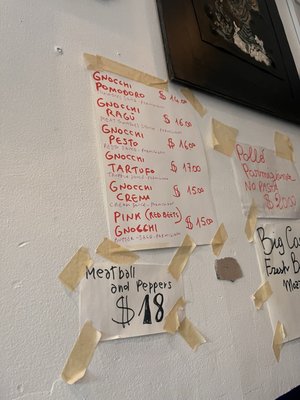 GNOCCHI $ 14.00
POMODORO
GNOCCHI
RAGÙ $ 16.00
GNOCCHI
PESTO $ 16.00
GNOCCHI
TARTUFO $ 17.00
GNOCCHI $ 15.00
CREMA
PINK (RED BEETS) $ 15.00
GNOCCHI
Meatball
and Peppers
$18
Pollo
Parmigiana
NO PASTA
$20.00
Big
Fresh